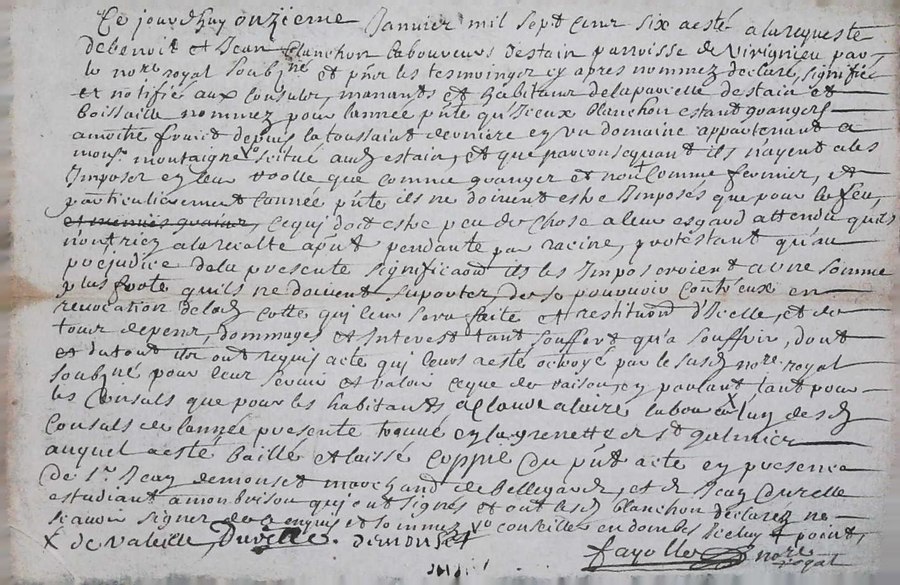 Ce jourdhuy onzieme Janvier mil sept cent six a esté a la requeste
de benoit et Jean blanchon laboureurs destain parroisse de Virignieu par
le nore royal soubzné et pnts les tesmoings cy apres nommez declaré, signifié
et notiffié aux Consuls, manants et habitans de la parcelle destain et
boissaille nommez pour lannée pnte qu'Iceux blanchon estant grangers
a moitié fruit depuis la toussaint derniere en un domaine appartenant a
monsr montaigne scitué aud estain, et que par consequant ils n'ayent a les
Imposer en leur roolle que comme granger et non comme fermier, et
particulierement lannée pnte ils ne doivent estre Imposés que pour le feu,
et menuis grains, ce qui doit estre peu de chose a leur esgard attendu qu'ils
n'ont rien a la recolte a pnt pendante par racine, protestant qu'au
prejudice de la presente signification ils les Imposeroient a une somme
plus forte qu'ils ne doivent suporter, de se pourvoir contr'eux en
revocation de lad cotte qui leur sera faite et restitution d'Icelle, et de
tous despens, dommages et Interest tant souffert qu'a souffrir, dont
et du tout ils ont requis acte qui leurs a esté octroyé par le susd nore royal
soubzné pour leur servir et valoir ce que de raison, en parlant tant pour
les Consuls que pour les habitants a Claude alaire labour x luy desd
Consuls de lannée presente trouvé en la grenette de St galmier
auquel a esté baillé et laissé coppie du pnt acte en presence
de Sr Jean demonset marchand de bellegarde, et de Jean Duvelle
estudiant a monbrison qui ont signés et ont lesd blanchon declarez ne
scavoir signer de ce enquis et sommez
x de Valeille Duvelle. demonset
fayolle nore
royal